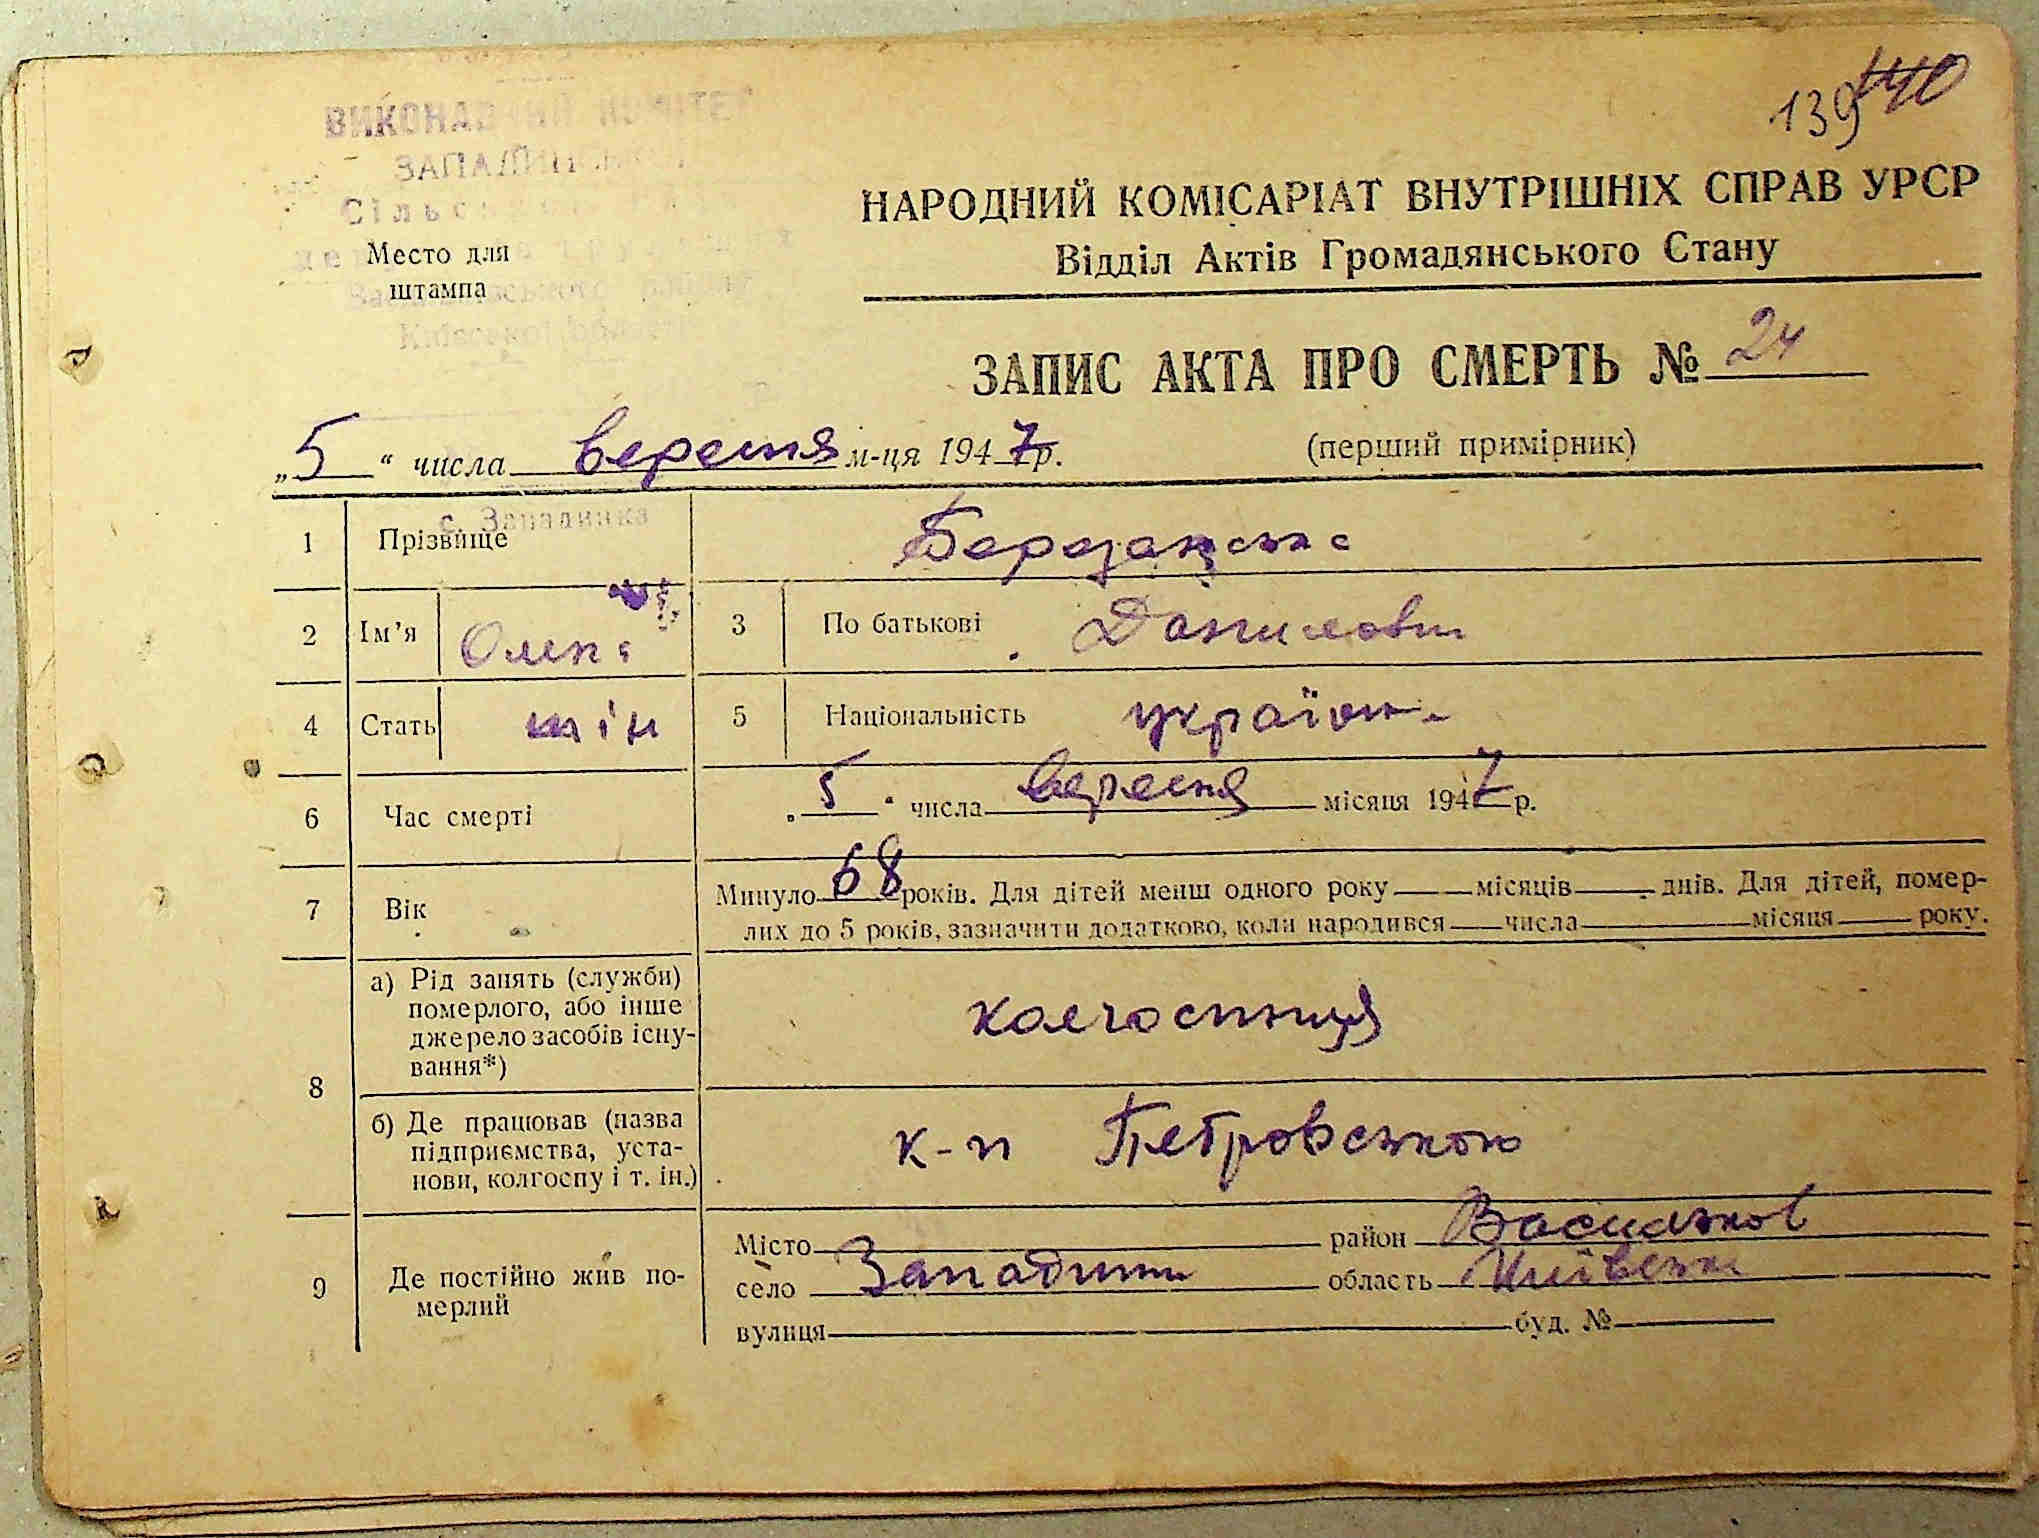 139 140
ВИКОНАВЧИЙ КОМІТЕТ
Місто для
штампа
НАРОДНИЙ КОМІСАРІАТ ВНУТРІШНІХ СПРАВ УРСР
Відділ Актів Громадянського Стану
ЗАПИС АКТА ПРО СМЕРТЬ № 24
„5“ числа вересня м-ця 1947 р. (перший примірник)
с. Западинка
1 Прізвище Березанська
2 Ім’я Олена 3 По батькові Данилович
4 Стать жін 5 Національність україн.
6 Час смерті „5“ числа вересня місяця 1947 р.
7 Вік Минуло 68 років. Для дітей менш одного року місяців днів. Для дітей, помер-
лих до 5 років, зазначити додатково, коли народився числа місяця року.
8 а) Рід занять (служби)
померлого, або інше
джерело засобів існу-
вання*) колгоспниця
б) Де працював (назва
підприємства, уста-
нови, колгоспу і т. ін.) к-п Петровського
9 Де постійно жив по-
мерлий
Місто район Васильков
село Западинка область Київська
вулиця буд. №